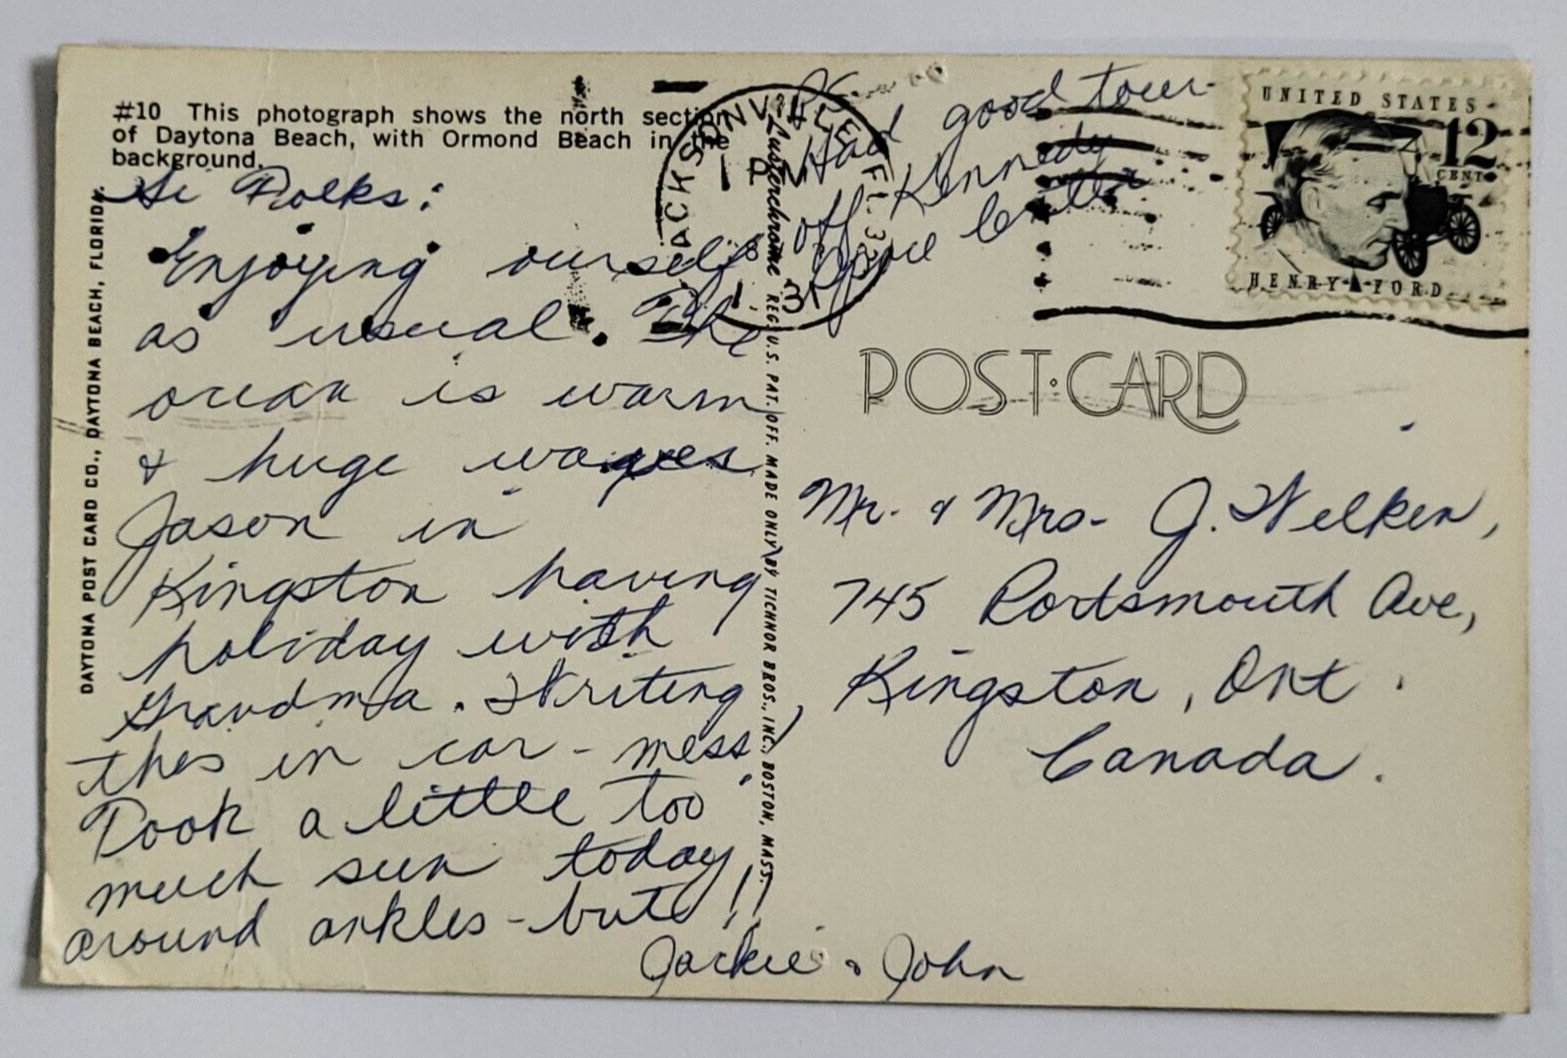 #10 This photograph shows the north section
of Daytona Beach, with Ormond Beach in the
background.
Hi Folks:
Enjoying ourself
as usual. The
ocean is warm
& huge waves
Jason in
Kingston having
holiday with
Grandma. Writing
this in car - mess,
Took a little too
much sun today
around ankles - but !!
Jackie & John
DAYTONA POST CARD CO., DAYTONA BEACH, FLORIDA.
Lusterchrome REG. U.S. PAT. OFF. MADE ONLY BY TICHNOR BROS., INC., BOSTON, MASS.
PS
Had good tour
off Kennedy
Space Centre
JACKSONVILLE, FL 3
PM
UNITED STATES
12
CENTS
HENRY FORD
POST CARD
Mr. & Mrs. J. Wilken,
745 Portsmouth Ave,
Kingston, Ont.
Canada.